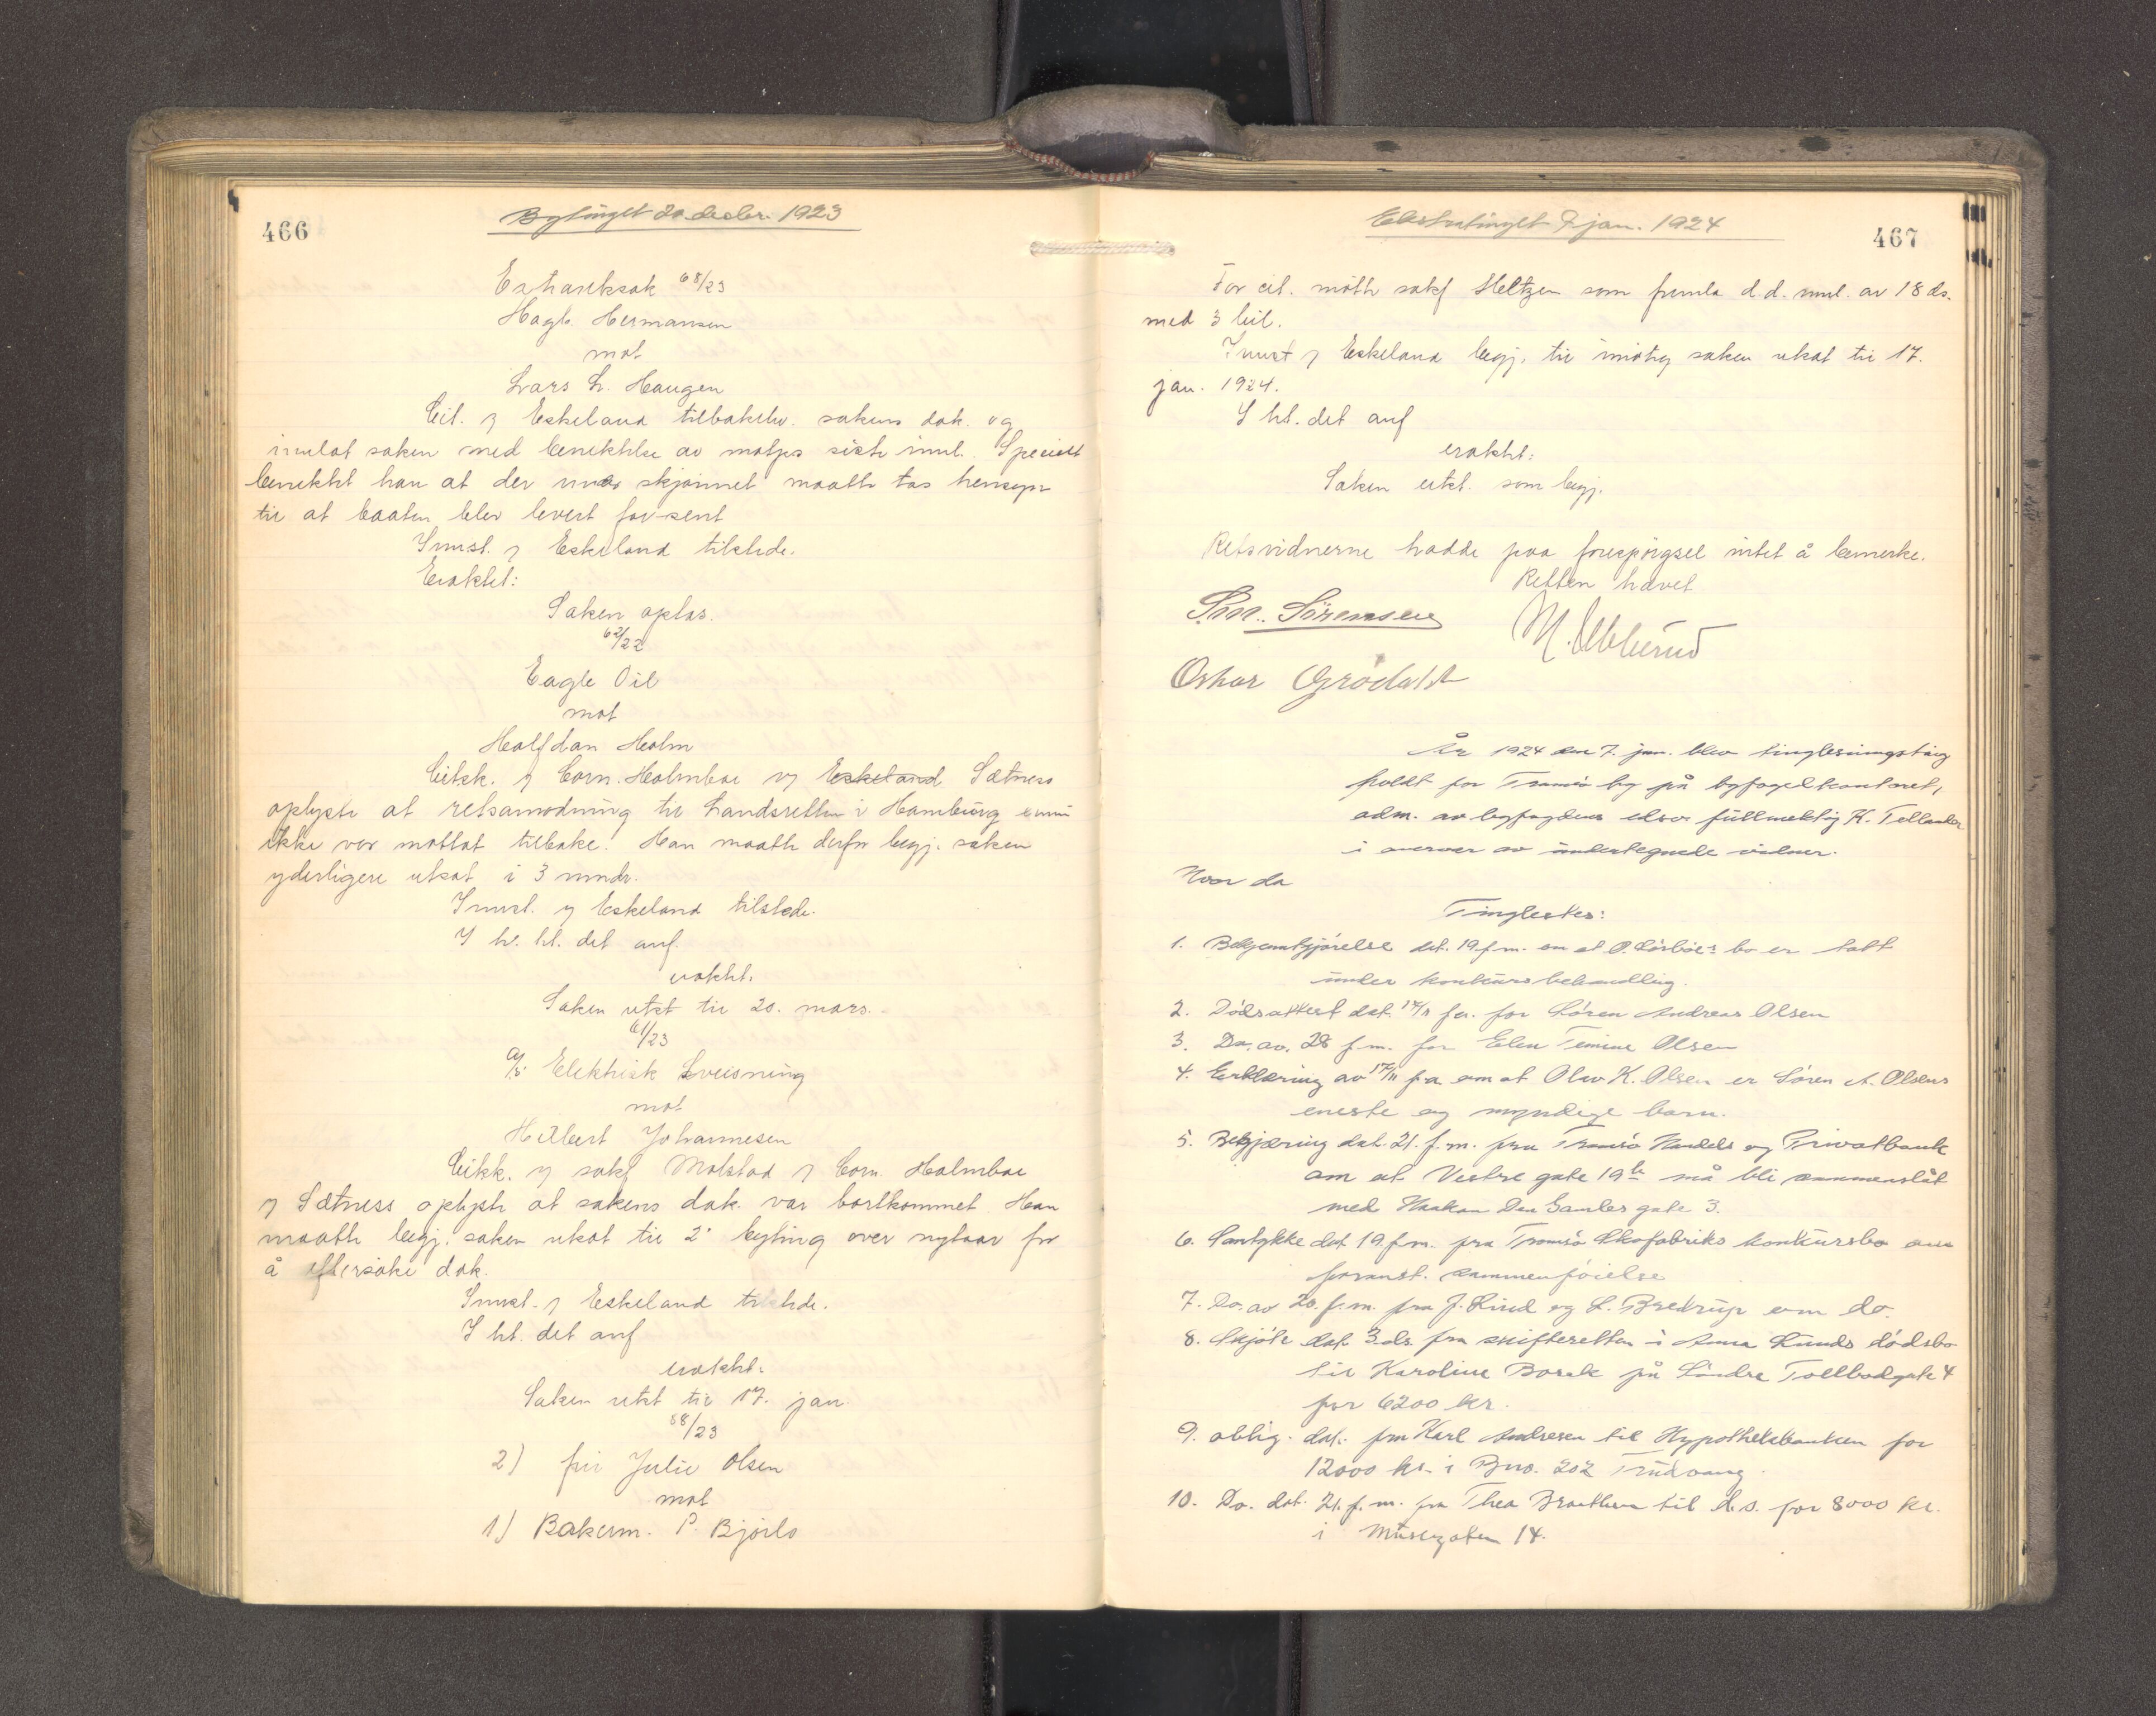 466
Bytinget 20 desbr. 1923
Extrarettssak 68/23
Hagb. Hermansen
mot
Lars L. Haugen
Cit. v Eskeland tilbakelev. sakens dok. og
innlot saken med benektelse av motps siste innl. Specielt
benektet han at der under skjønnet maatte tas hensyn
til at baaten blev levert for sent
Innst. v Eskeland tilstede.
Eraktet:
Saken optas.
62/22
Eagle Oil
mot
Halfdan Holm
Citsk. v Corn. Holmboe v/ Eskeland Sætness
oplyste at retsanmodning til Landsretten i Hamburg ennu
ikke var mottat tilbake. Han maatte derfor begj. saken
yderligere utsat i 3 mndr.
Innst. v Eskeland tilstede.
I h. ht. det anf.
eraktet.
Saken utst til 20. mars.
61/23
A/S Elektrisk Sveisning
mot
Hilbert Johannesen
Citsk. v sakf Molstad v Corn. Holmboe
v Sætness oplyste at sakens dok. var bortkommet. Han
maatte begj. saken utsat til 2. byting over nytaar for
å eftersøke dok.
Innst. v Eskeland tilstede.
I ht. det anf
eraktet.
Saken utst til 17. jan.
58/23
2) fru Julie Olsen
mot
1) Bakerm. P. Bjørlo
Ekstratinget 7 jan. 1924
467
For cit. møtte sakf Heltzen som freml. d.d. innl. av 18 ds.
med 3 bil.
Innst v Eskeland begj. til imøteg saken utsat til 17.
jan. 1924.
I ht. det anf
eraktet:
Saken utst. som begj.
Retsvidnerne hadde paa forespørgsel intet å bemerke.
Retten hævet
Sørensen
Oskar Grødahl
År 1924 den 7. jan. blev tinglesningsting
holdt for Tromsö by på byfogedkontoret,
adm. av byfogdens edsv. fullmektig K.
i overvær av undertegnede vidner.
Hvor da
Tinglestes:
1. Bekjentgjørelse dat. 19 f.m. om at O. Sørbøes bo er tatt
under konkursbehandling.
2. Dödsattest dat. 14/11 f.a. for Sören Andreas Olsen
3. Do. av. 28 f.m. for Elen Olsen
4. Erklæring av 17/11 f.a om at Olav K. Olsen er Sören A. Olsens
eneste og myndige barn.
5. Begjæring dat. 21. f.m. fra Tromsö Handels og Privatbank
om at Vestre gate 19b må bli sammenslåt
med Haakon Den Gamles gate 3.
6. Samtykke dat 19 f.m. fra Tromsö Skofabriks konkursbo om
foranst. sammenföielse
7. Do. av 20. f.m. fra J. Lind og L. Bredrup om do.
8. Skjöte dat 3. ds. fra skifteretten i Anna Lunds dödsbo
til Karoline Borch på Söndre Tollbodgate 4
for 6200 kr.
9. oblig. dat. fra Karl Andresen til Hypothekbanken for
12000 kr. i Bno. 202 Trudvang.
10. Do. dat. 21. f.m. fra Thea til d.s. for 8000 kr.
i Musegaten 14.